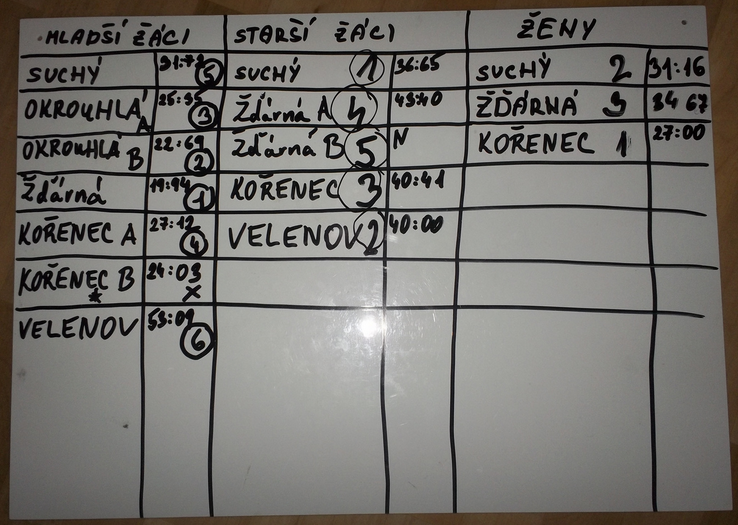 MLADŠÍ ŽÁCI STARŠÍ ŽÁCI ŽENY
SUCHÝ 5 SUCHÝ 1 36:65 SUCHÝ 2 31:16
OKROUHLÁ A 3 Žďárná A 4 43:40 ŽĎÁRNÁ 3 34 67
OKROUHLÁ B 22:69 2 Žďárná B 5 N KOŘENEC 1 27:00
Žďárná 19:94 1 KOŘENEC 3 40:41
KOŘENEC A 27:12 4 VELENOV 2 40:00
KOŘENEC B * 24:03 X
VELENOV 53:09 6